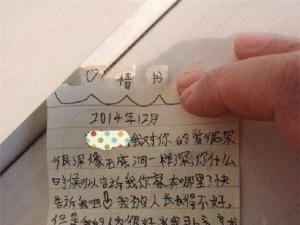 ♡情书
2014年12月
我对你的爱很深
很深像无底洞一样深,你什么
时候可以告诉我你家在哪里?快
告诉我吧 我放人长的得不好,
但是我的人很好